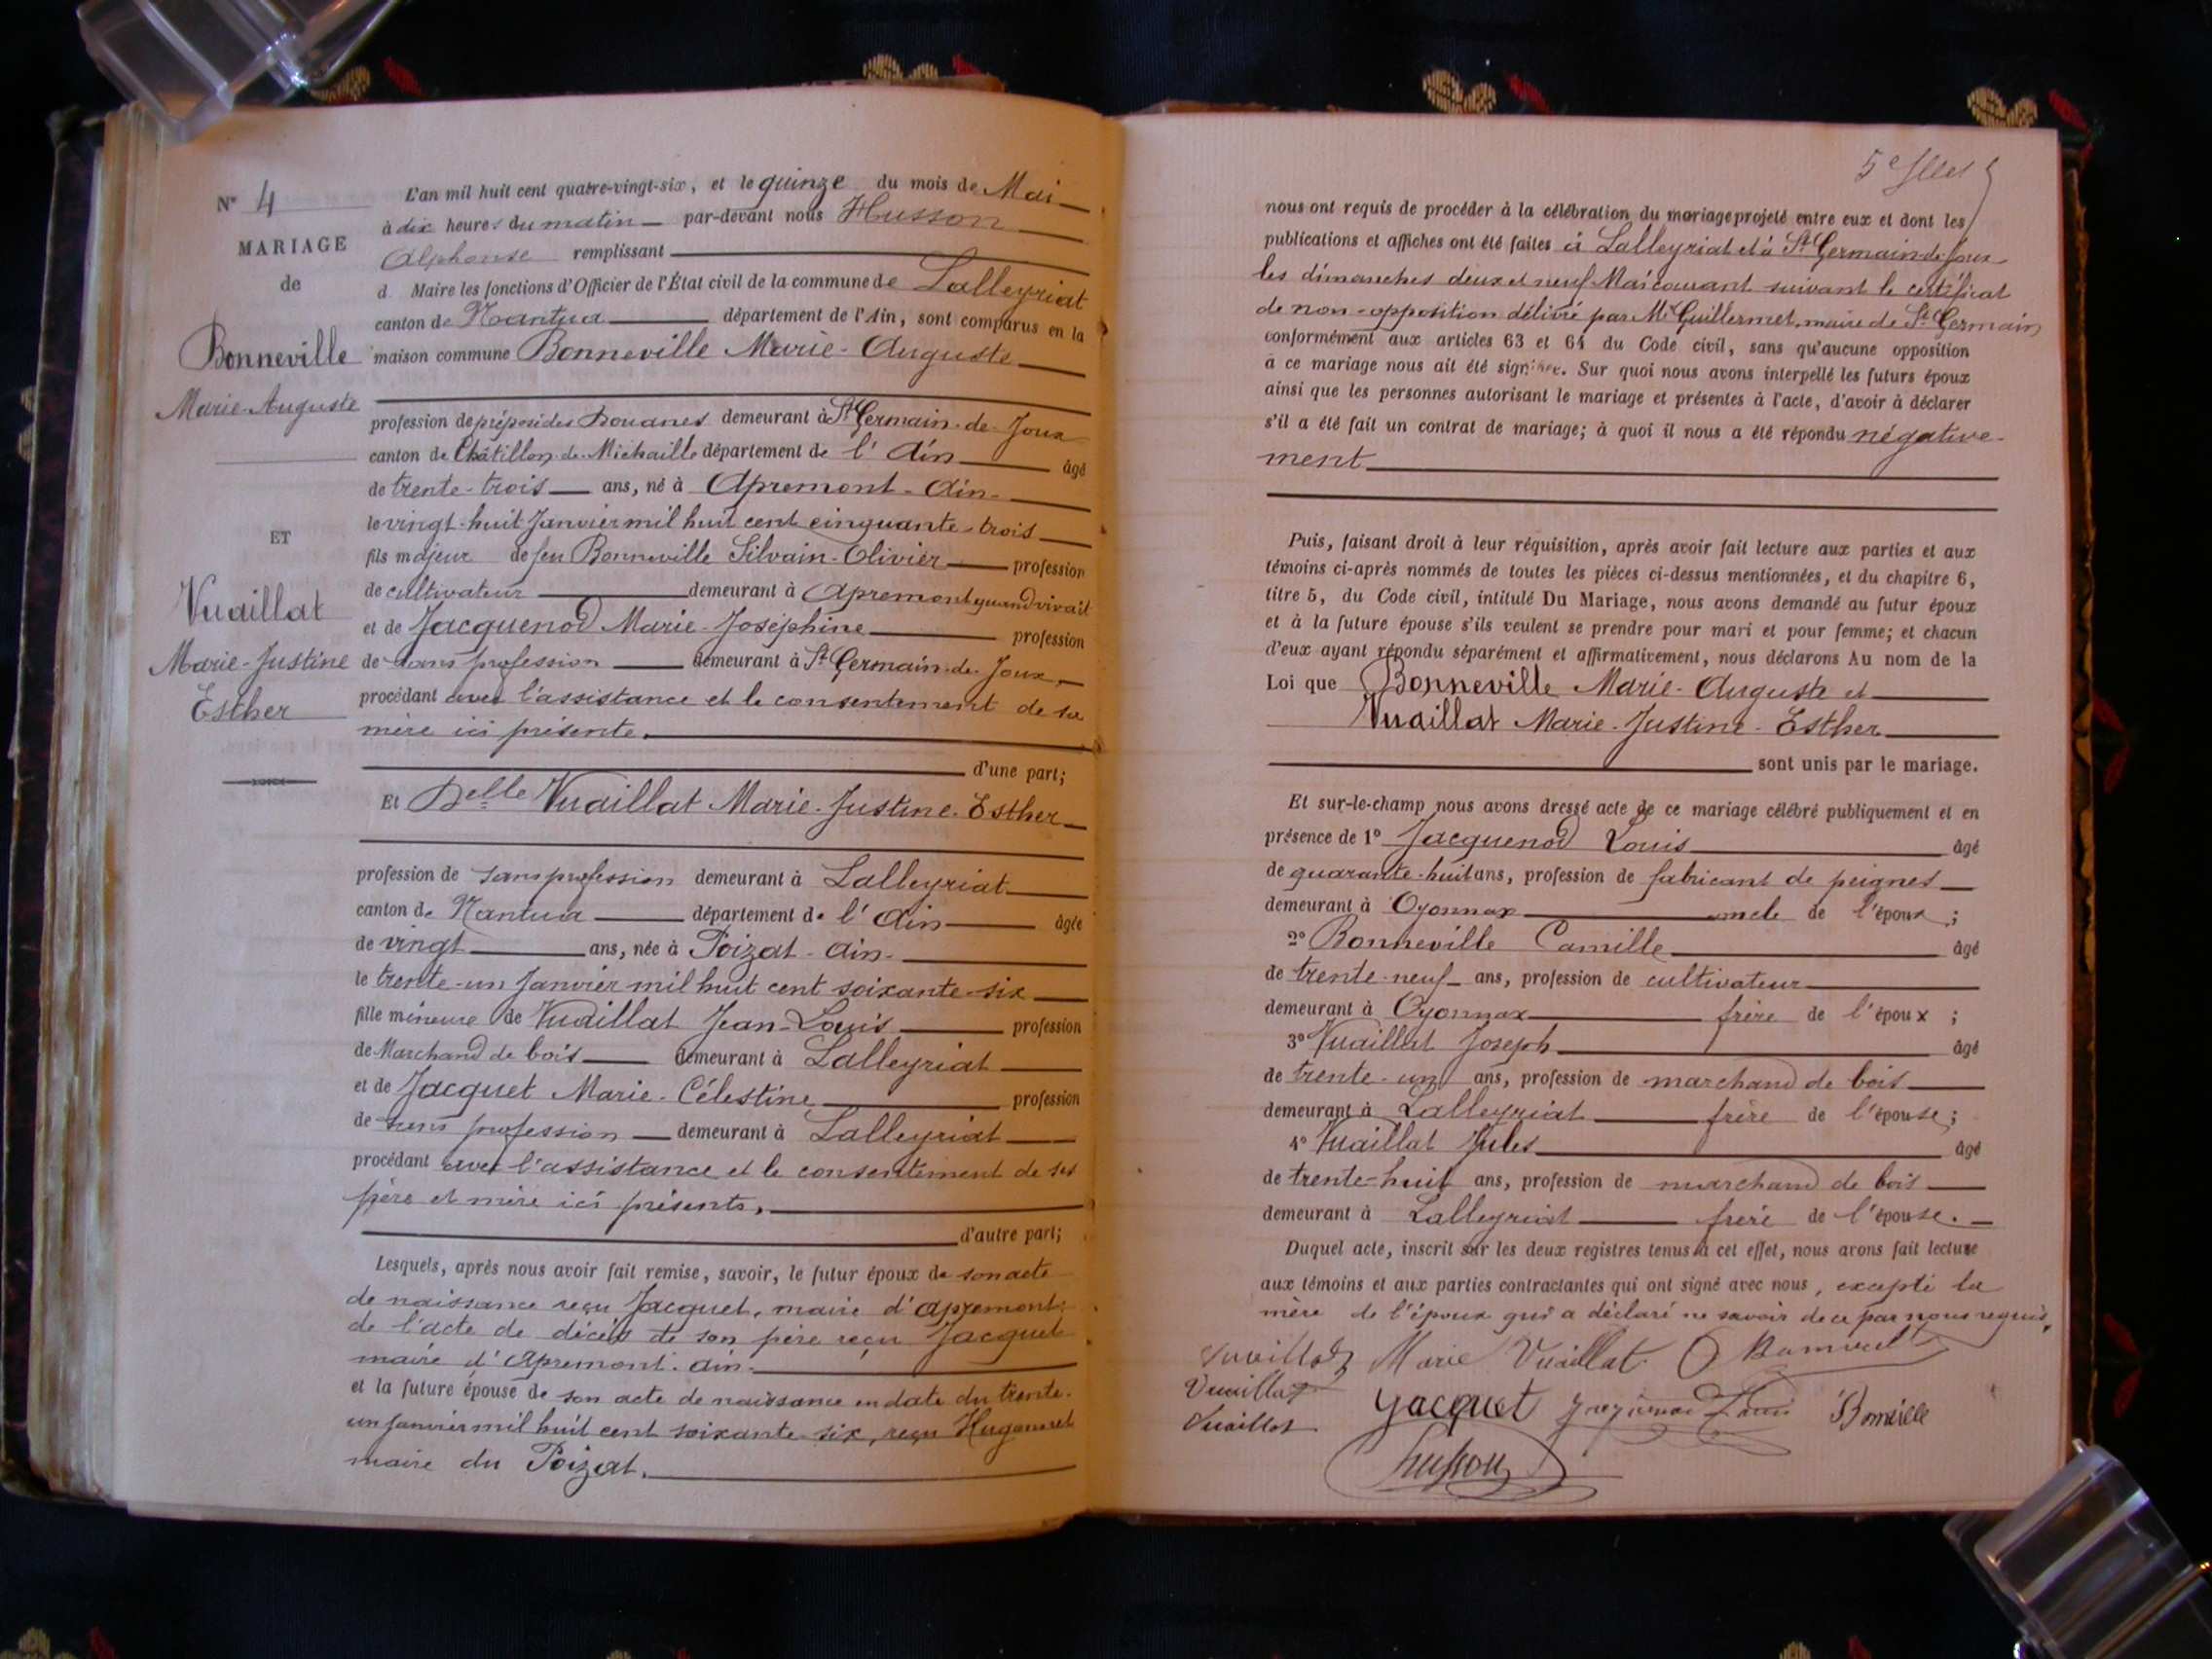 N° 4
MARIAGE
de
Bonneville
Marie-Auguste
ET
Vuaillat
Marie-Justine
Esther
L'an mil huit cent quatre-vingt-six, et le quinze du mois de Mai
à dix heures du matin par-devant nous Husson
Alphonse remplissant
d Maire les fonctions d'Officier de l'État civil de la commune de Lalleyriat
canton de Nantua département de l'Ain, sont comparus en la
maison commune Bonneville Marie-Auguste
profession de préposé des Douanes demeurant à St Germain-de-Joux
canton de Châtillon-de-Michaille département de l'Ain âgé
de trente-trois ans, né à Apremont-Ain-
le vingt-huit Janvier mil huit cent cinquante-trois
fils majeur de feu Bonneville Silvain-Olivier profession
de cultivateur demeurant à Apremont quand vivait
et de Jacquenod Marie-Joséphine profession
de sans profession demeurant à St Germain-de-Joux
procédant avec l'assistance et le consentement de sa
mère ici présente.
d'une part;
Et Delle Vuaillat Marie-Justine-Esther
profession de sans profession demeurant à Lalleyriat
canton de Nantua département de l'Ain âgée
de vingt ans, née à Poizat-Ain-
le trente-un Janvier mil huit cent soixante-six
fille mineure de Vuaillat Jean-Louis profession
de Marchand de bois demeurant à Lalleyriat
et de Jacquet Marie-Célestine profession
de sans profession demeurant à Lalleyriat
procédant avec l'assistance et le consentement de ses
père et mère ici présents.
d'autre part;
Lesquels, après nous avoir fait remise, savoir, le futur époux de son acte
de naissance reçu Jacquet, maire d'Apremont;
de l'acte de décès de son père reçu Jacquet
maire d'Apremont-Ain-
et la future épouse de son acte de naissance en date du trente-
un Janvier mil huit cent soixante-six, reçu Hugonnet
maire du Poizat.
5e
nous ont requis de procéder à la célébration du mariage projeté entre eux et dont les
publications et affiches ont été faites à Lalleyriat et à St Germain-de-Joux
les dimanches deux et neuf Mai courant suivant le certificat
de non-opposition délivré par Mr Guillermet, maire de St Germain
conformément aux articles 63 et 64 du Code civil, sans qu'aucune opposition
à ce mariage nous ait été signifiée. Sur quoi nous avons interpellé les futurs époux
ainsi que les personnes autorisant le mariage et présentes à l'acte, d'avoir à déclarer
s'il a été fait un contrat de mariage; à quoi il nous a été répondu négative-
ment
Puis, faisant droit à leur réquisition, après avoir fait lecture aux parties et aux
témoins ci-après nommés de toutes les pièces ci-dessus mentionnées, et du chapitre 6,
titre 5, du Code civil, intitulé Du Mariage, nous avons demandé au futur époux
et à la future épouse s'ils veulent se prendre pour mari et pour femme; et chacun
d'eux ayant répondu séparément et affirmativement, nous déclarons Au nom de la
Loi que Bonneville Marie-Auguste et
Vuaillat Marie-Justine-Esther
sont unis par le mariage.
Et sur-le-champ nous avons dressé acte de ce mariage célébré publiquement et en
présence de 1° Jacquenod Louis âgé
de quarante-huit ans, profession de fabricant de peignes
demeurant à Oyonnax oncle de l'époux;
2° Bonneville Camille âgé
de trente-neuf ans, profession de cultivateur
demeurant à Oyonnax frère de l'époux;
3° Vuaillat Joseph âgé
de trente-un ans, profession de marchand de bois
demeurant à Lalleyriat frère de l'épouse;
4° Vuaillat Jules âgé
de trente-huit ans, profession de marchand de bois
demeurant à Lalleyriat frère de l'épouse.
Duquel acte, inscrit sur les deux registres tenus à cet effet, nous avons fait lecture
aux témoins et aux parties contractantes qui ont signé avec nous, excepté la
mère de l'époux qui a déclaré ne savoir de ce par nous requis.
Vuaillat Marie Vuaillat
Vuaillat
Vuaillat Jacquet Jacquenod Louis
Husson